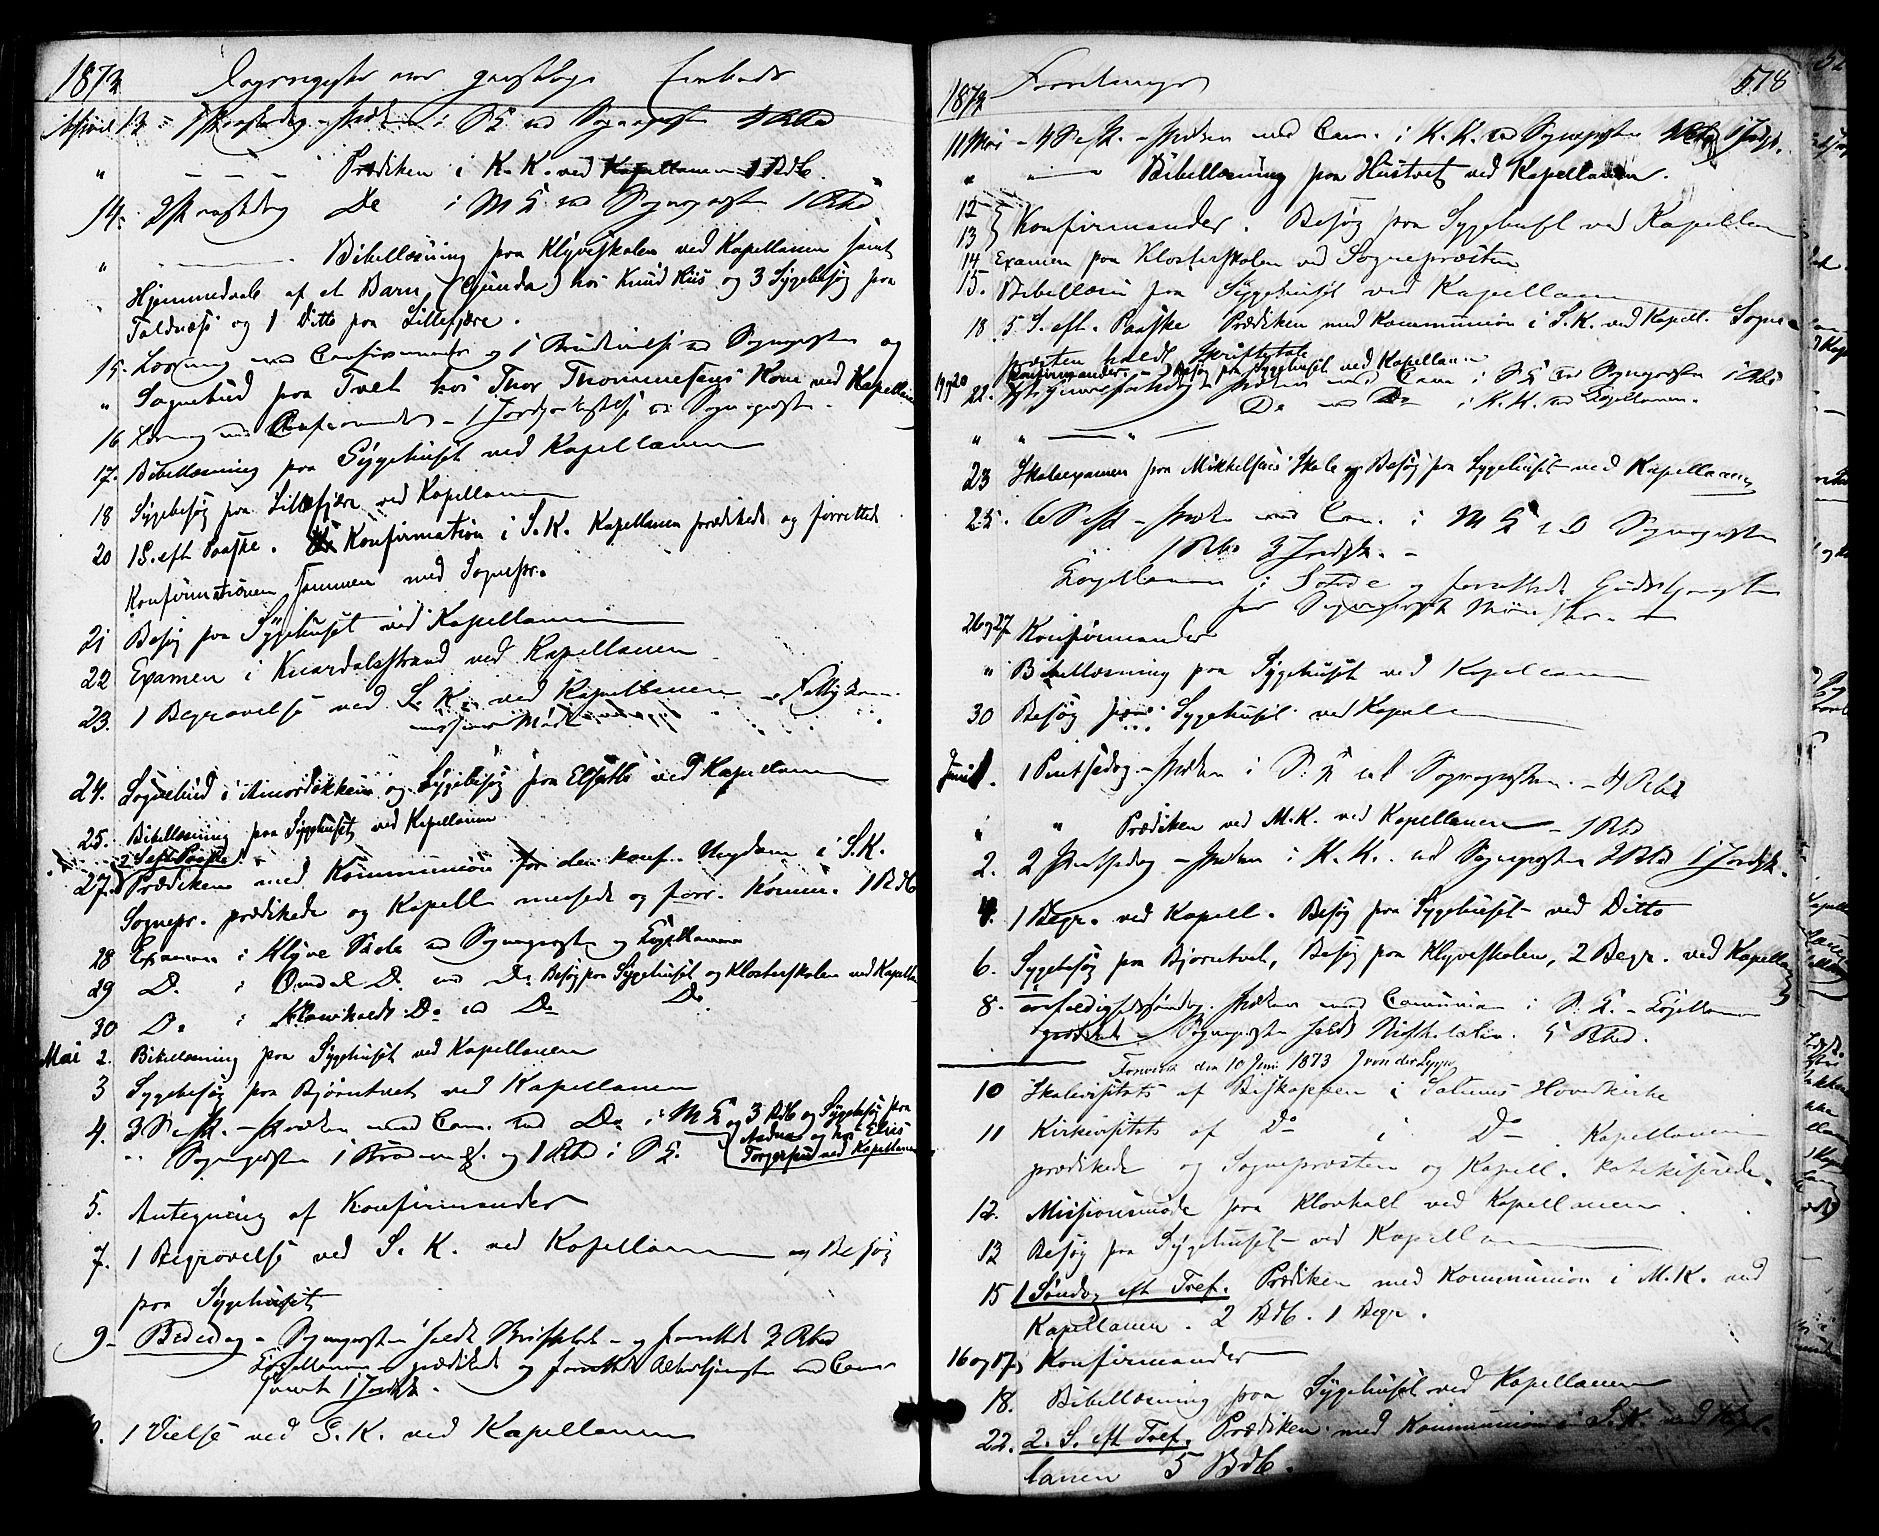 1873 Dagregister over geistlige Embeds
April 13 1 Paaskedag – Præken i S.K. ved Sognepresten 4 Rbd
" — — — Prædiken i K.K. ved Kapellanen 1 Bdb.
14. 2 Paaskedag Do i M.K. ved Sognepresten 1 Rbd
" Bibellæsning paa Klyveskolen ved Kapellanen samt
Hjemmedaab af et Barn (Gunda) hos Knud Hiis og 3 Sygebesøg paa
Toldnæss og 1 Ditto paa Lillefjære.
15. Læsning med Confirmander og 1 Brudevielse ved Sognepresten og
" Sognebud paa Tvet hos Thor Thommesens Kone ved Kapellanen
16 Læsning med Confirmander – 1 Jordpaakastelse ved Sognepresten.
17. Bibellæsning paa Sygehuset ved Kapellanen
18 Sygebesøg paa Lillefjære ved Kapellanen
20 1 S. eft Paaske. Konfirmation i S.K. Kapellanen prædikede og forrettede
Konfirmationen sammen med Sognepr.
21 Besøg paa Sygehuset ved Kapellanen
22 Examen i Knardalsstrand ved Kapellanen
23. 1 Begravelse ved S.K. ved Kapellanen – Fattigkom-
missions Møde
24. Sognebud i og Sygebesøg paa ved Kapellanen
25. Bibellæsning paa Sygehuset ved Kapellanen
2 S eft Paaske
27. Prædiken med Kommunion for den konf. Ungdom i S.K.
Sognepr. prædikede og Kapell. messede og forr. Komm. 1 Bdb
28 Examen i Klyve Skole ved Sognepresten og Kapellanen
29 Do i Omdal Do ved Do Besøg paa Sygehuset og Klosterskolen ved Kapellan
30 Do i Klovholdt Do ved Do Do
Mai 2. Bibellæsning paa Sygehuset ved Kapellanen
3 Sygebesøg paa Bjørntvet ved Kapellanen
4. 3 S e. P. – Præken med Com. ved Do i M.K. og 3 Bdb og Sygebesøg paa
" Sognepresten 1 Brudevi. og 1 Rbd i S.K. og hos Elias
Torgersen ved Kapellanen
5. Antegning af Konfirmander
7. 1 Begravelse ved S.K. ved Kapellanen og Besøg
paa Sygehuset
9 – Bededag – Sognepresten holdt Skriftetale – og forrettede 3 Rbd
Kapellanen prædikede og forrettede Altertjenesten med Com
samt 1 Jordpk.
1 Vielse ved S.K. ved Kapellanen
1873 Forretninger 518
11 Mai – 4 S e. P. – Præken med Com. i K.K. ved Sognepresten 1 Jordpk.
" " — Bibellæsning paa Hustvet ved Kapellanen.
12
13 } Konfirmander. Besøg paa Sygehuset ved Kapellan
14 Examen paa Klosterskolen ved Sognepræsten
15. Bibellæsn paa Sygehuset ved Kapellanen
18 5 S. eft. Paaske Prædiken med Kommunion i S.K. ved Kapell. Sogne-
præsten holdt Skriftetale
19 og 20 Konfirmander. – Besøg paa Sygehuset ved Kapellanen
22. Christi Himmelfartsdag Præken med Com i S.K. ved Sognepresten 1 Rbd
" " — " — Do med Do i K.K. ved Kapellanen.
23 Skoleexamen paa Mikkelsens Skole og Besøg paa Sygehuset ved Kapellanen
25. 6 S e. P – Præken med Com. i M.K. ved Sognepresten
1 Rbd 3 Jordpk. –
Kapellanen i Solde og forrettede Gudstjenesten
for Sognepræst
26 og 27 Konfirmander
" Bibellæsning paa Sygehuset ved Kapellanen
30 Besøg paa Sygehuset ved Kapellan
Juni 1. 1 Pintsedag – Præken i S.K. ved Sognepresten. – 4 Rbd
" " Prædiken ved M.K. ved Kapellanen – 1 Rbd
2. 2 Pintsedag – Præken i K.K. ved Sognepresten 2 Rbd 1 Jordpk.
4. 1 Begr. ved Kapell. Besøg paa Sygehuset ved Ditto
6. Sygebesøg paa Bjørntvet, Besøg paa Klyveskolen, 2 Begr. ved Kapellan
8. Trefoldighedssøndag. Præken med Communion i S.K. – Kapellanen
prædikede – Sognepresten holdt Skriftetalen. 5 Rbd.
Foreviist den 10 Juni 1873 J von der Lippe
10 Skolevisitats af Biskoppen i Solums Hovedkirke
11 Kirkevisitats af Do i Do. Kapellanen
prædikede og Sognepræsten og Kapell. katekiserede.
12. Missionsmøde paa Klovholt ved Kapellanen.
13 Besøg paa Sygehuset ved Kapellanen
15 1 Søndag eft Tref. Prædiken med Kommunion i M.K. ved
Kapellanen. 2 Bdb. 1 Begr.
16 og 17, Konfirmander
18. Bibellæsning paa Sygehuset ved Kapellanen
22. 2. S. eft Tref. Prædiken med Kommunion i S.K. ved Kapel-
lanen 5 Bdb.